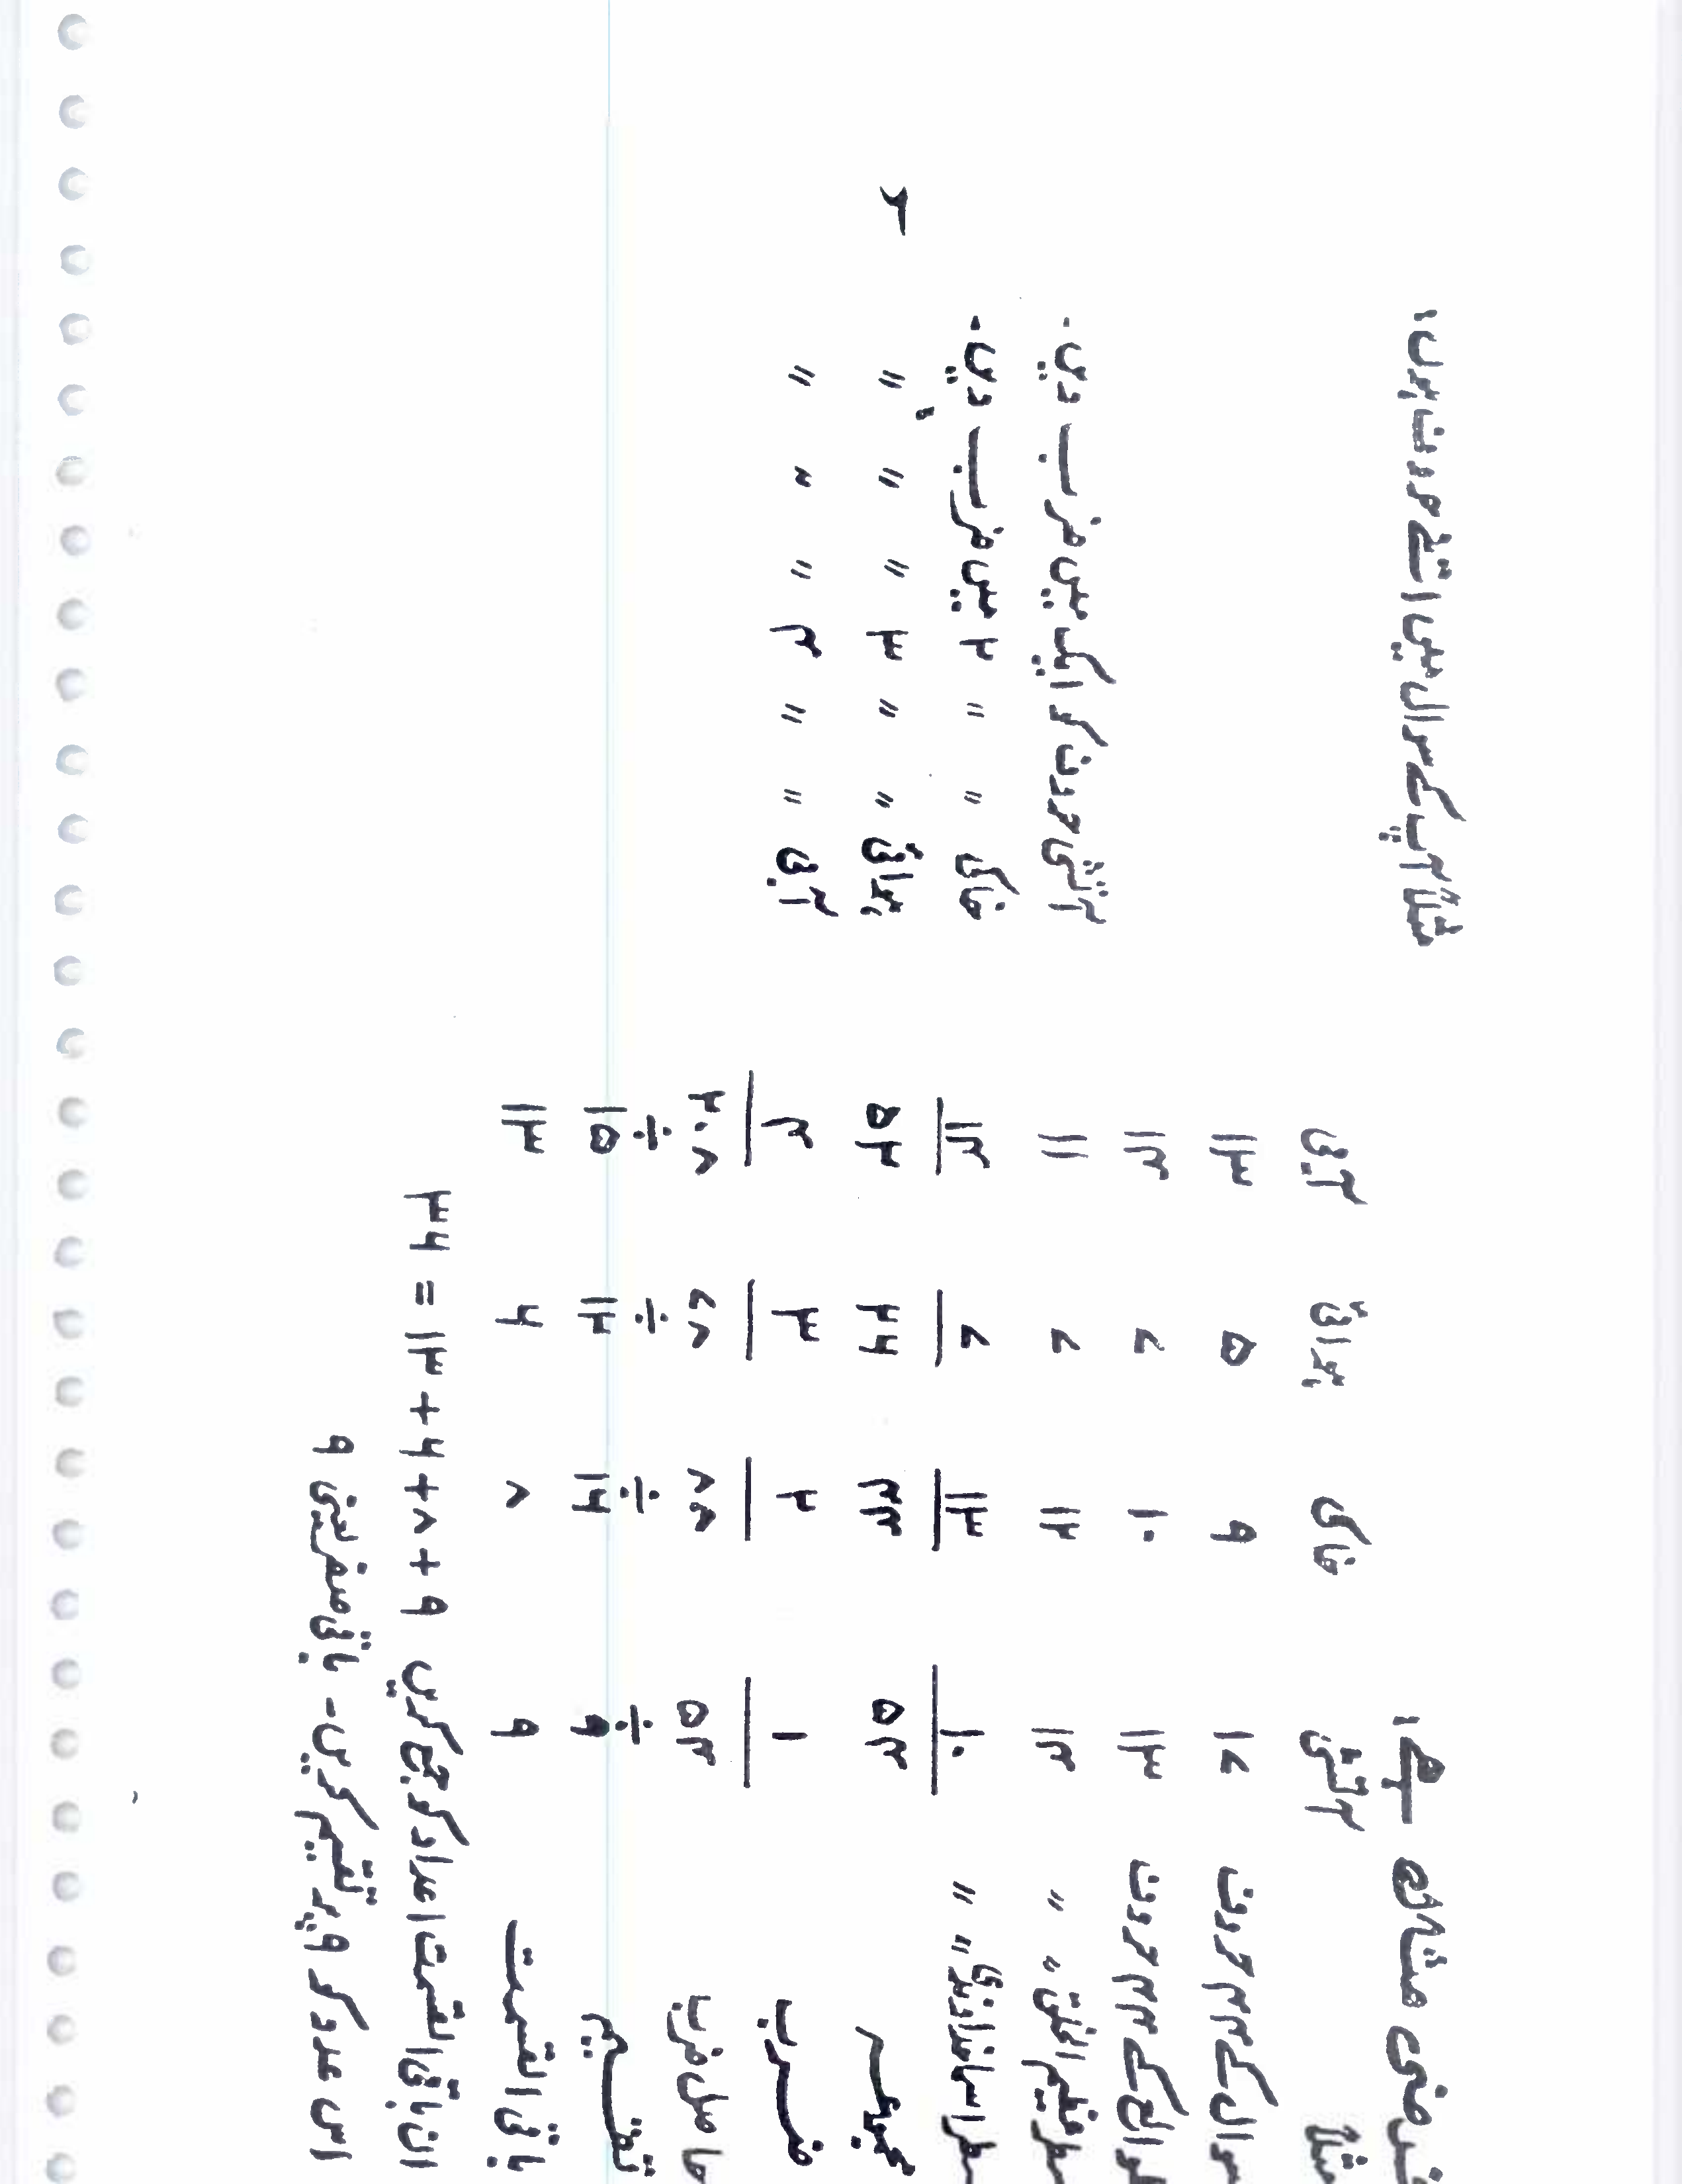 فرضی مثال سے، مثلاً آپ کے سوال میں اتنے حروف ہیں،
مثلاً آتشی خاکی ہوائی آبی
سوال کے ۴۴ حروف ۱۷ ۹ ۵ ۱۳
طوالع کے ۴۴ حروف ۱۳ ۱۰ ۷ ۱۴
سطر عظیم الخلق " " ۱۴ ۱۲ ۷ ۱۱
سطر اسما خداوندی " " ۱۰ ۱۳ ۷ ۱۴
مجموعہ ۵۴ ۴۴ ۲۶ ۵۲
ضرب ۱ ۲ ۳ ۴
حاصل ضرب ۵۴ ۸۸ ۷۸ ۲۰۸
تقسیم ÷ ۹ ÷ ۱۶ ÷ ۱۲ ÷ ۱۵
باقی القسمت ۹ ۸ ۶ ۱۳
ان باقی القسمت اعداد کو جمع کریں ۹ + ۸ + ۶ + ۱۳ = ۳۶
اس عدد کو ۹ پر تقسیم کریں۔ باقی صفر یعنی ۹
آتشی حروف کو ایک میں ضرب دیں۔
خاکی " " ۲ میں ضرب دیں۔
ہوائی " " ۳ " " "
آبی " " ۴ " " "